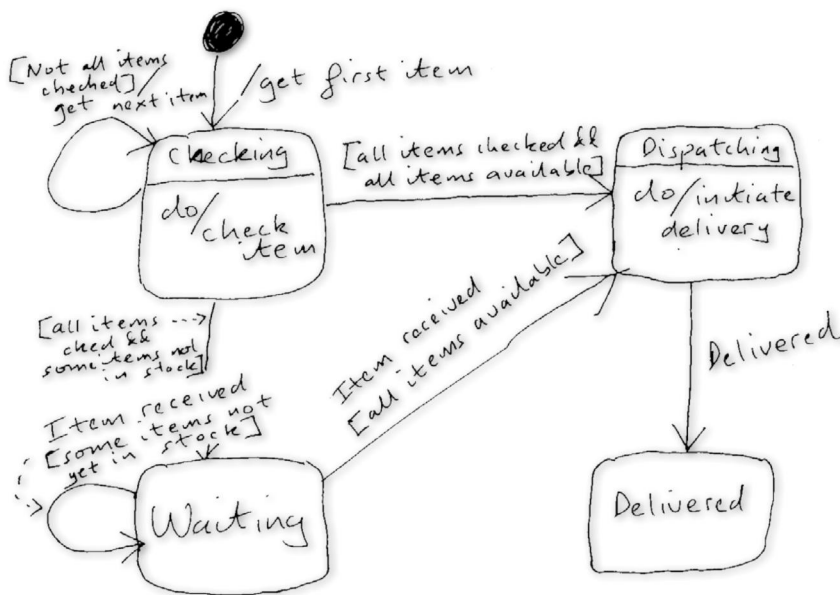 [Not all items
checked]/
get next item
/get first item
Checking
do/
check
item
[all items checked &&
all items available]
Dispatching
do/initiate
delivery
[all items
cked &&
some items not
in stock]
Item received
[all items available]
Delivered
Item received
[some items not
yet in stock]
Waiting
Delivered